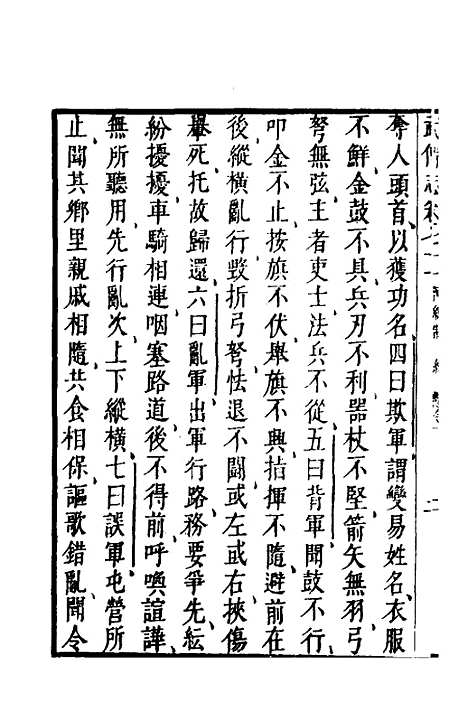 奪人頭首以獲功名四曰欺軍謂變易姓名衣服
不鮮金鼓不具兵刃不利器杖不堅箭矢無羽弓
弩無弦主者吏士法兵不從五曰背軍聞鼓不行
叩金不止按旗不伏舉旗不興指揮不隨避前在
後縱橫亂行毀折弓弩怯退不鬪或左或右挾傷
轝死托故歸還六曰亂軍出軍行路務要爭先紜
紛擾擾車騎相連咽塞路道後不得前呼喚諠譁
無所聽用先行亂次上下縱橫七曰誤軍屯營所
止聞其鄉里親戚相隨共食相保謳歌錯亂聞令